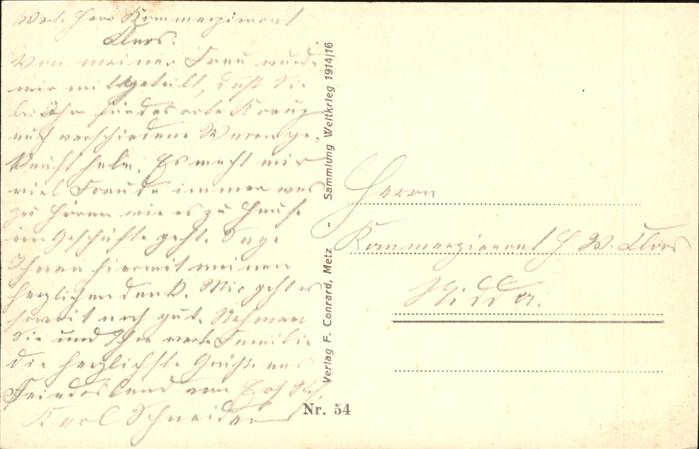 Wert. Herr Kommerzienrat
Kloos.
Von meiner Frau wurde
mir mitgeteilt, daß Sie
bei Ihr für das rote Kreuz
auf verschiedene Waren ge-
kauft habe. Es macht mir
viel Freude immer was
zu hören wie es zu Hause
im Geschäfte geht. Sage
Ihnen hiermit meinen
herzlichen dank. Mir geht es
soweit noch gut. Nehmen
Sie und Ihre werte Familie
die herzlichste Grüße aus
Feindesland von
Karl Schneider
Verlag F. Conrard, Metz. Sammlung Weltkrieg 1914/16
Nr. 54
Herrn
Kommerzienrat W. Kloos
Nidda.